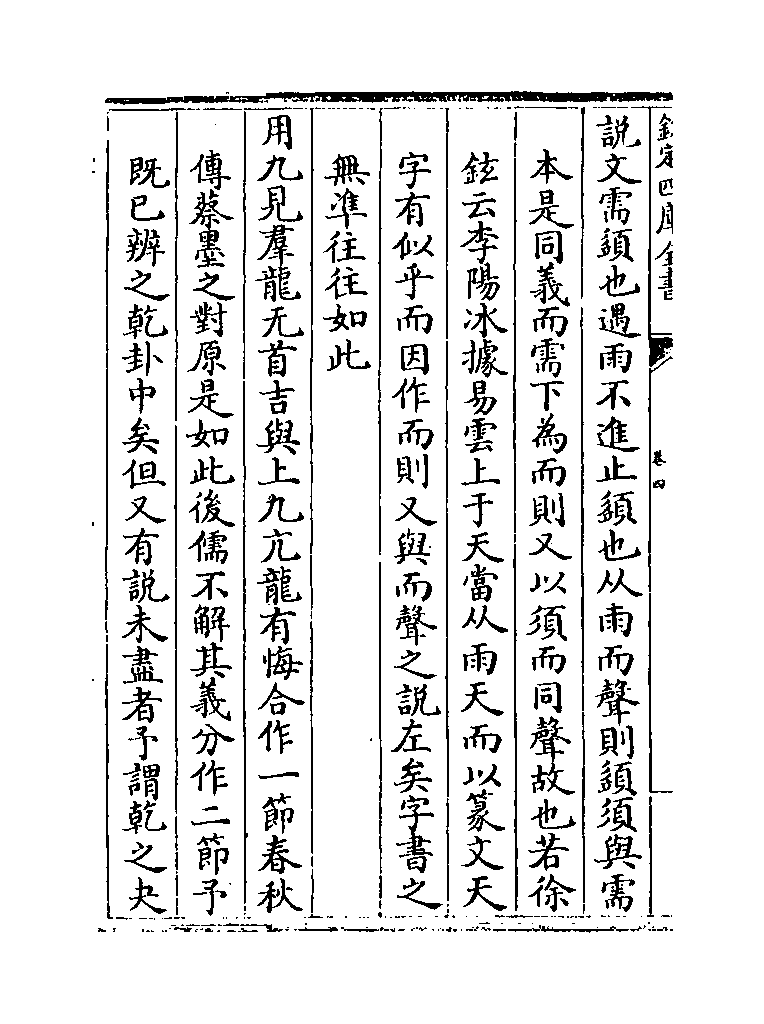 欽定四庫全書
卷四
說文需䇓也遇雨不進止䇓也从雨而聲則䇓須與需
本是同義而需下為而則又以須而同聲故也若徐
鉉云李陽冰據易雲上于天當从雨天而以篆文天
字有似乎而因作而則又與而聲之說左矣字書之
無準往往如此
用九見羣龍无首吉與上九亢龍有悔合作一節春秋
傳蔡墨之對原是如此後儒不解其義分作二節予
既已辨之乾卦中矣但又有說未盡者予謂乾之夬